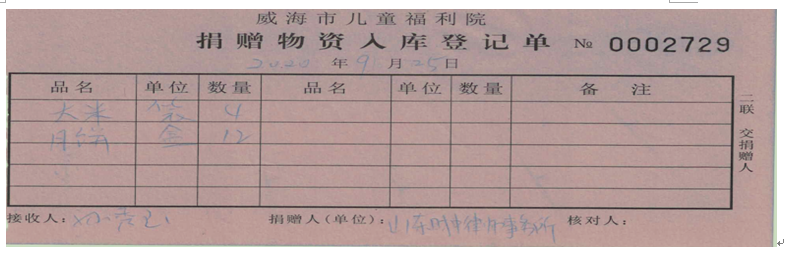 威海市儿童福利院
捐赠物资入库登记单 № 0002729
2020年9月25日
品名 单位 数量 品名 单位 数量 备注
大米 袋 4
月饼 盒 12
二联 交捐赠人
接收人： 捐赠人(单位)：山东 律师事务所 核对人：